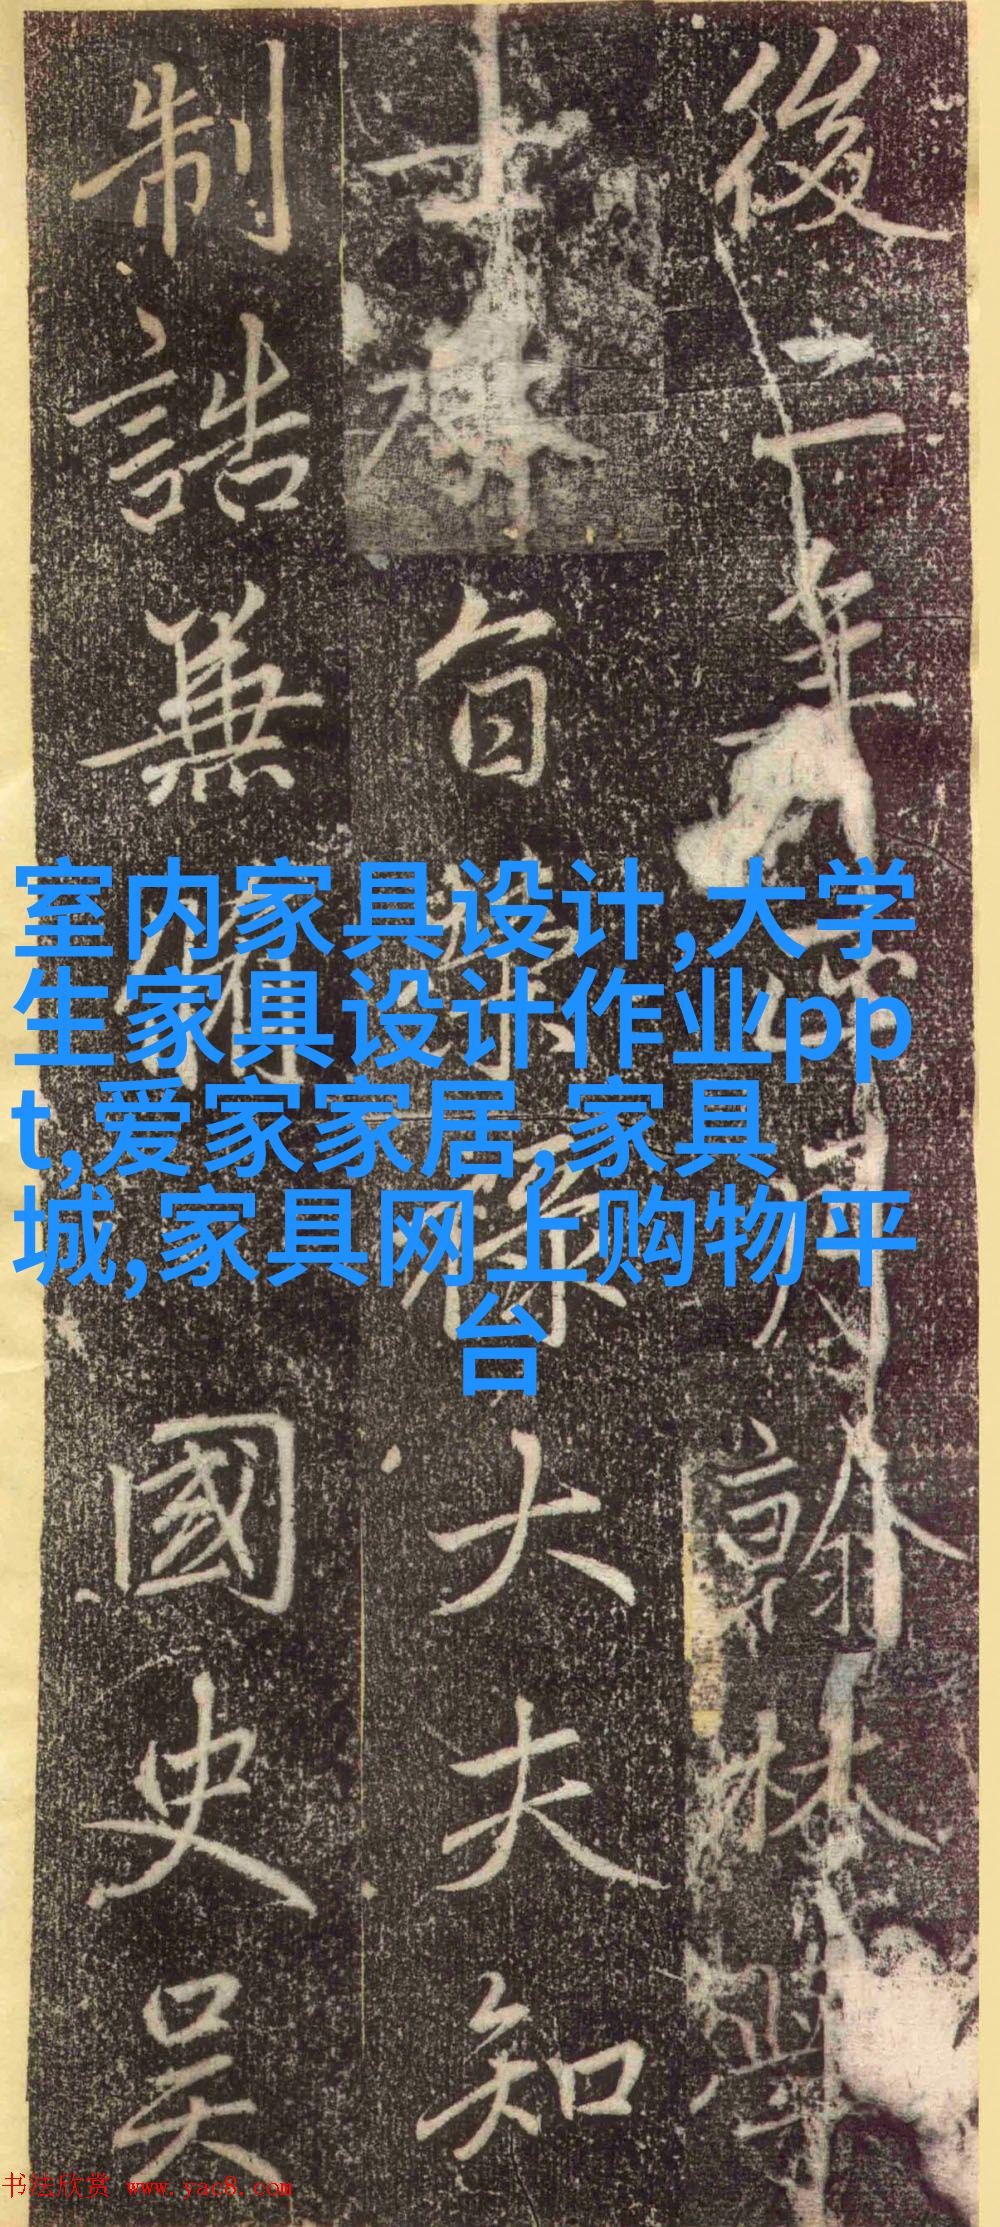 後二年正月翰林學
士奉旨榮祿大夫知
制誥兼脩國史吴
室内家具设计,大学
生家具设计作业pp
t,爱家家居,家具
城,家具网上购物平
台
书法欣赏 www.yac8.com